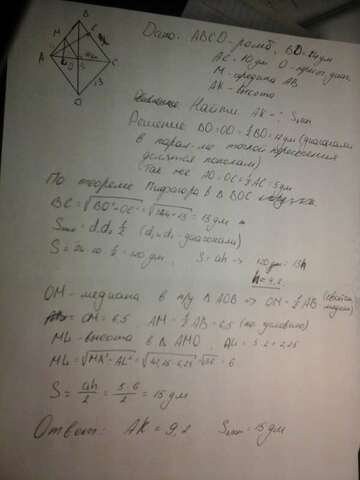 B
M
K
A
L
O
C
13
D
Дано: ABCD - ромб, BD=24дм
AC=10дм O - пересеч. диаг.
M - середина AB
AK - высота
Найти AK - ? S
Решение BO=OD=½BD=12дм (диагонали
в парал-ме точкой пересечения
делятся пополам)
Так же AO=OC=½AC=5дм
По теореме Пифагора в Δ BOC
BC=√BO²+OC²=√144+25=13дм
S=d₁d₂½ (d₁,d₂-диагонали)
S=24·10·½=120дм, S=ah => 120дм=13h
h=9,2
OM - медиана в п/у Δ AOB => OM=½AB
OM=6,5 AM=½AB=6,5 (по условию)
ML - высота в Δ AMO, AL=5:2=2,5
ML=√MA²-AL²=√42,25-6,25=√36=6
S=ah/2=5·6/2=15дм
Ответ: AK=9,2 S=15дм